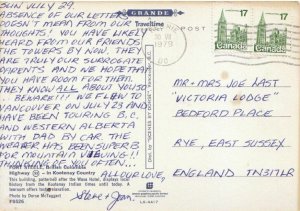 SUN JULY 29.
ABSENCE OF OUR LETTERS
DOESN'T MEAN FROM OUR
THOUGHTS! YOU HAVE LIKELY
HEARD FROM OUR FRIENDS
THE TOWERS BY NOW. THEY
ARE TRULY OUR SURROGATE
STUDENTS. AND WE HOPE THAT
YOU HAVE ROOM FOR THEM.
THEY KNOW ALL ABOUT YOU SO
BEWARE! WE FLEW TO
VANCOUVER ON JULY 23 AND
HAVE BEEN TOURING B.C.
AND WESTERN ALBERTA
WITH DAD BY CAR. THE
WEATHER HAS BEEN SUPERB
FOR MOUNTAIN VIEWING!!
THINKING OF YOU OFTEN...
ALL OUR LOVE,
Steve + Jan.
FORT STEELE, British Columbia
Highway in Kootenay Country
This building, patterned after the Wasa Hotel, displays local
history from the Kootenay Indian times until today. A
tearoom offers light refreshments.
Photo by Dorse McTaggart
FS526
GRANDE
Traveltime
POST
1979
17
Canada
17
Canada
MR + MRS JOE LAST
"VICTORIA LODGE"
BEDFORD PLACE
RYE, EAST SUSSEX
ENGLAND TN31 7LR
LX-4417